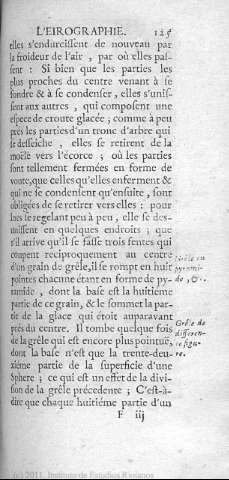 L'EIROGRAPHIE. 125
elles s'endurcissent de nouveau par
la froideur de l'air, par où elles pas-
sent : Si bien que les parties les
plus proches du centre venant à se
fondre & à se condenser, elles s'unis-
sent aux autres, qui composent une
espece de croute glacée ; comme à peu
prés les parties d'un tronc d'arbre qui
se desseiche, elles se retirent de la
moële vers l'écorce ; où les parties
sont tellement fermées en forme de
voute, que celles qu'elles enferment &
qui ne se condensent qu'ensuite, sont
obligées de se retirer vers elles : pour
lors se regelant peu à peu, elle se des-
unissent en quelques endroits ; que
s'il arrive qu'il se fasse trois fentes qui
coupent reciproquement au centre
d'un grain de grêle, il se rompt en huit
pointes chacune étant en forme de py-
ramide, dont la base est la huitiéme
partie de ce grain, & le sommet la par-
tie de la glace qui étoit auparavant
prés du centre. Il tombe quelque fois
de la grêle qui est encore plus pointuë,
dont la base n'est que la trente-deu-
xiéme partie de la superficie d'une
Sphere ; ce qui est un effet de la divi-
sion de la grêle précedente ; C'est-à-
dire que chaque huitiéme partie d'un
F iij
Grêle en
pyrami-
de
Grêle de
differen-
te figu-
re.
(c) 2011, Instituto de Estudios Riojanos